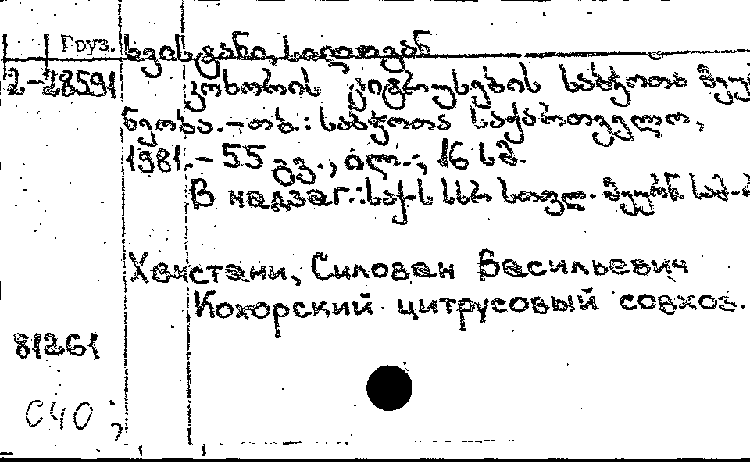 Груз. ხვისტანი, სილოვან
2-28591 კოხორის ციტრუსების საბჭოთა მეურ
ნეობა.-თბ.: საბჭოთა საქართველო,
1981.- 55 გვ., ილ.; 16 სმ.
В надзаг.: საქ-ს სსრ სოფლ. მეურნ. სამ-
Хвистани, Силован Васильевич
Кохорский цитрусовый совхоз.
81261
С40;